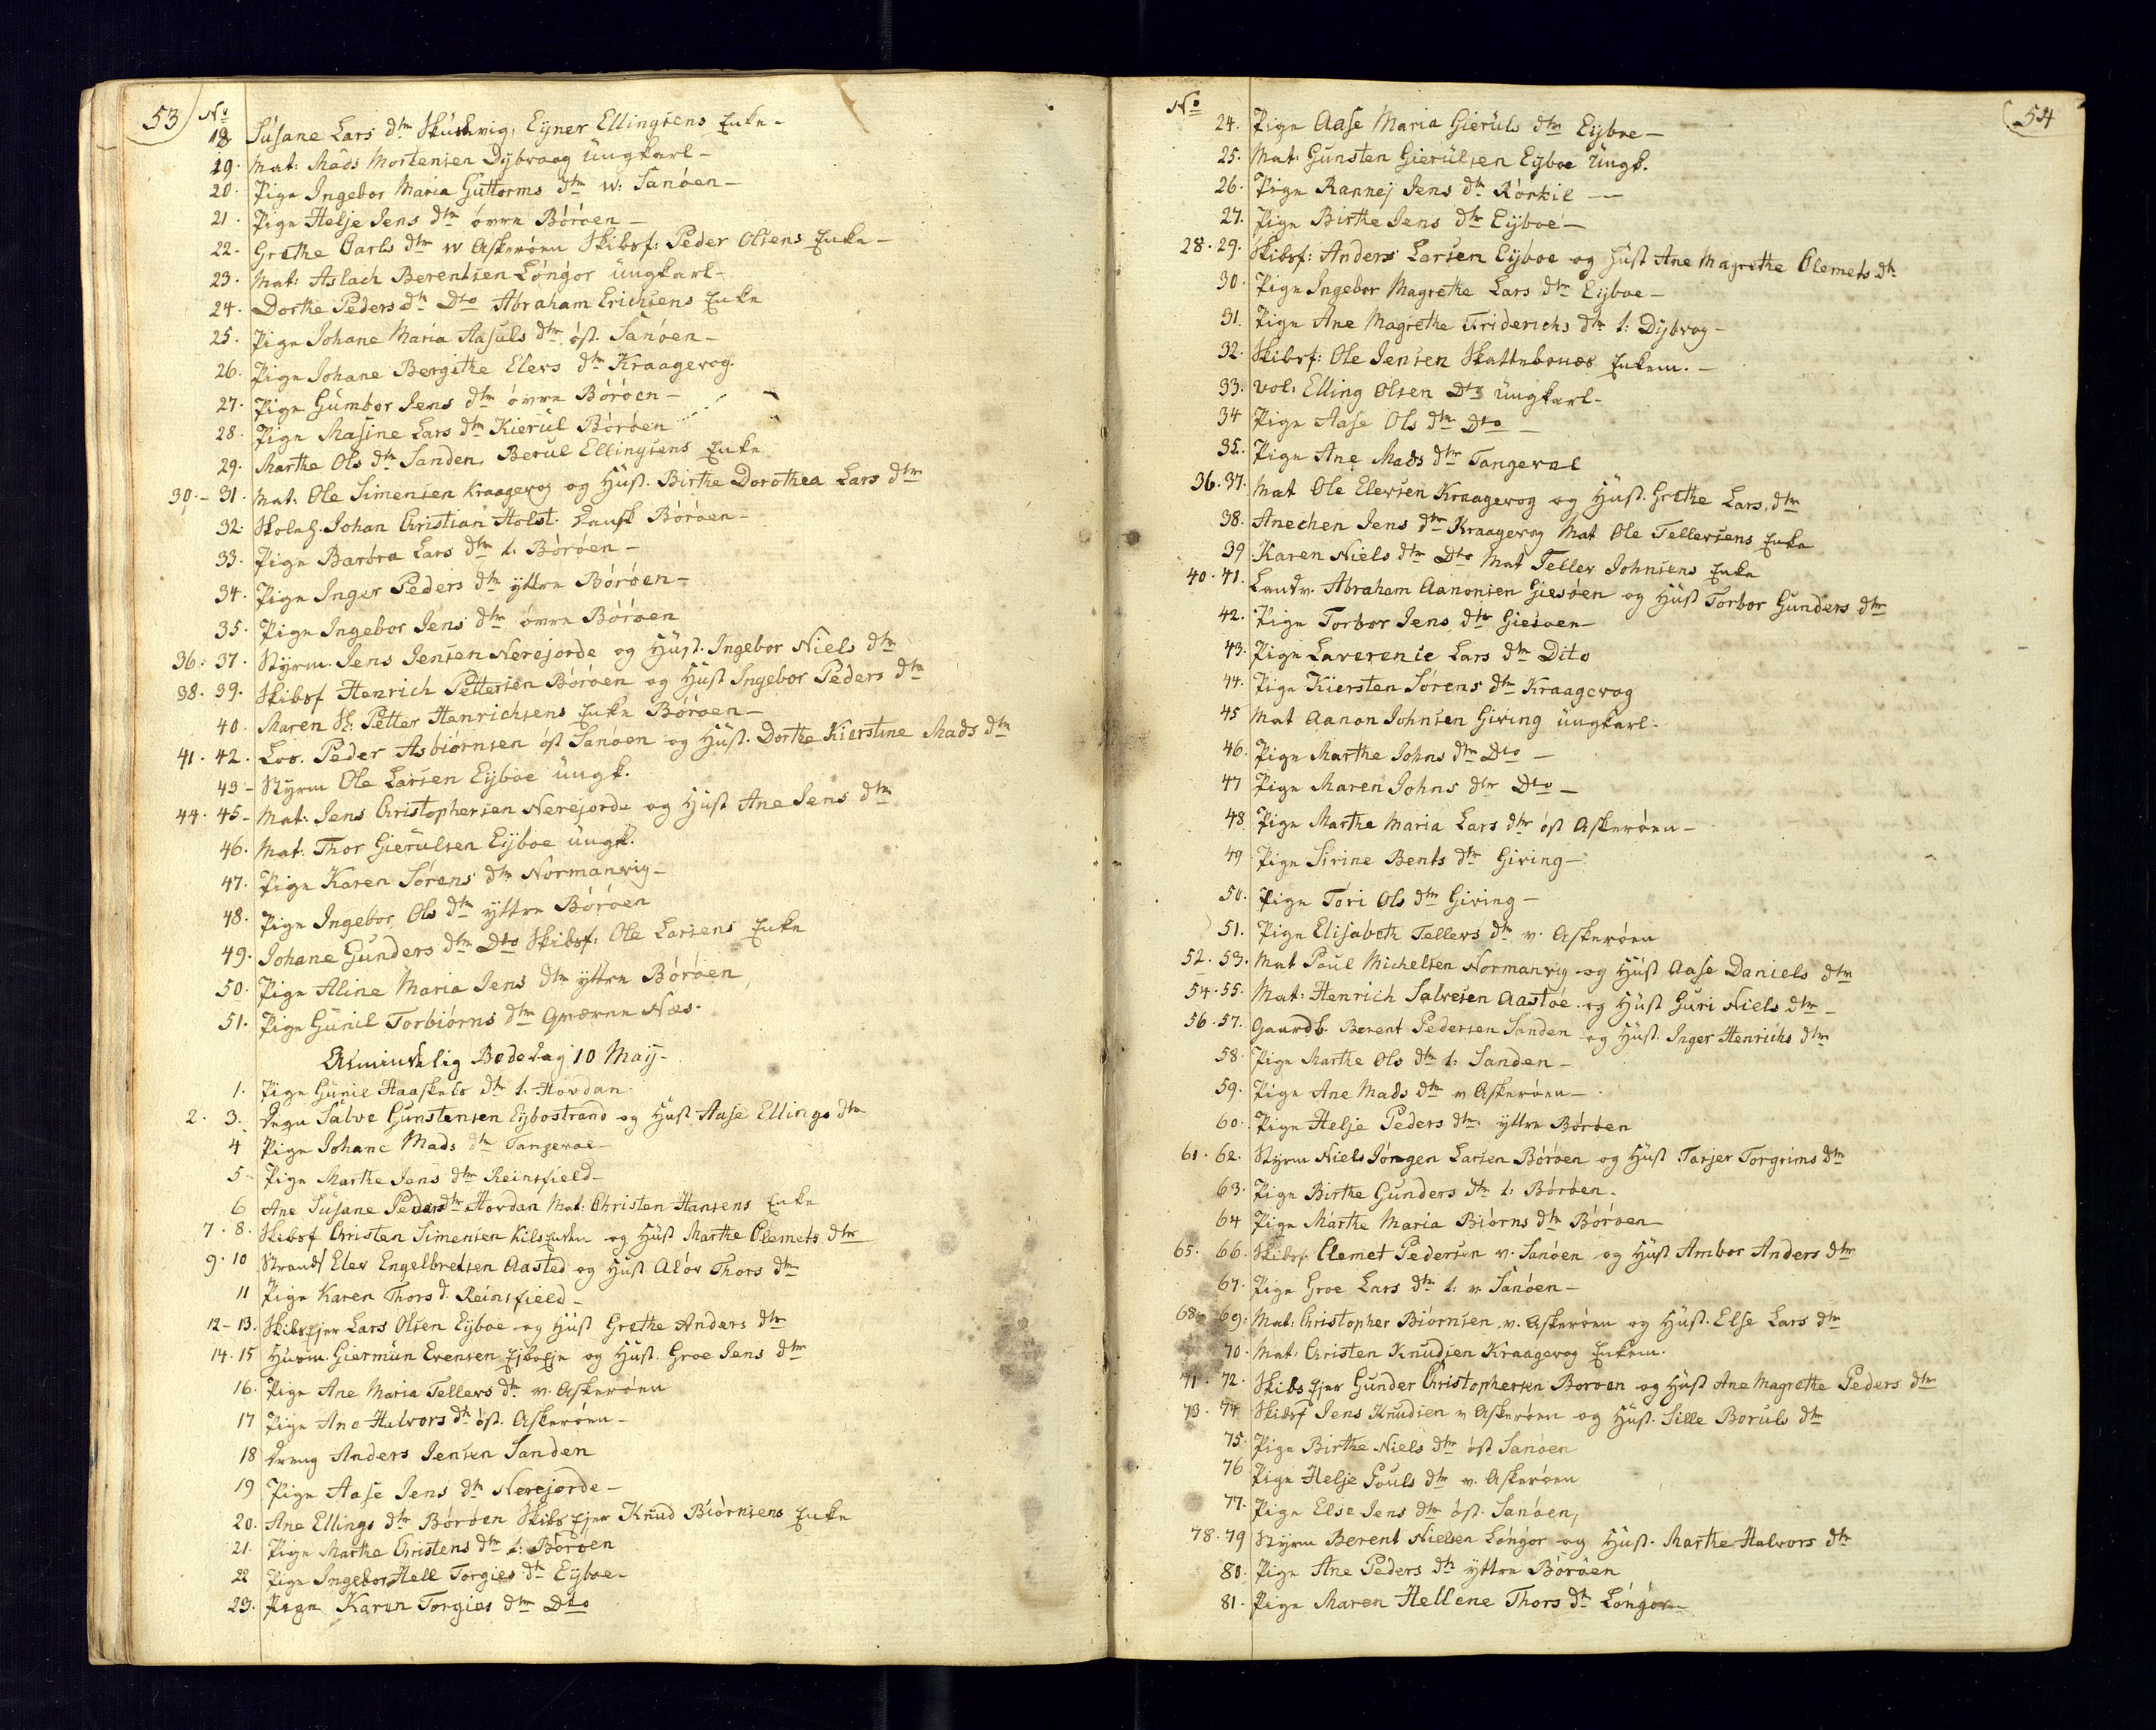 53
No
18 Susane Lars dtr Skuthvig, Ejner Ellingsens Enke -
19. Mat: Mads Mortensen Dybvaag ungkarl -
20. Pige Ingebor Maria Guttorms dtr w: Sanöen -
21. Pige Helje Jens dtr övre Böröen -
22. Grethe Carls dtr w Askeröen Skibsf: Peder Olsens Enke -
23. Mat: Aslach Berentsen Löngör ungkarl -
24. Dorthe Peders dtr Dto Abraham Erichsens Enke
25. Pige Johane Maria Aasuls dtr öst. Sanöen -
26. Pige Johane Bergithe Elevs dtr Kraagevog.
27. Pige Gumbor Jens dtr övre Böröen -
28. Pige Masine Lars dtr Kierul Böröen
29. Marthe Ols dtr Sanden, Berul Ellingsens Enke
30. - 31. Mat: Ole Simensen Kraagevog og Hust. Birthe Dorothea Lars dtr
32. Skoleh. Johan Christian Holst. Dansk Böröen -
33. Pige Barbra Lars dtr l. Böröen -
34. Pige Inger Peders dtr yttre Böröen -
35. Pige Ingebor Jens dtr övre Böröen
36. 37. Styrm. Jens Jensen Nerejorde og Hust. Ingebor Niels dtr
38. 39. Skibsf Henrich Pettersen Böröen og Hust Ingebor Peders dtr
40. Maren Sl: Petter Henrichsens Enke Böröen -
41. 42. Los. Peder Asbiörnsen öst Sanöen og Hust. Dorthe Kierstine Mads dtr
43 - Styrm Ole Larsen Eijboe ungk.
44. 45 - Mat: Jens Christophersen Nerejorde og Hust Ane Jens dtr
46. Mat: Thor Gierulsen Eijboe ungk.
47. Pige Karen Sörens dtr Normanvig -
48. Pige Ingebor Ols dtr yttre Böröen
49. Johane Gunders dtr Dto Skibsf: Ole Larsens Enke
50. Pige Aline Maria Jens dtr yttre Böröen
51. Pige Gunil Torbiörns dtr Qværne Næs.
Almindelig Bededag 10 Maij -
1. Pige Gunil Haaskels dtr l. Hovdan
2. 3. Degn Salve Gunstensen Eijbostrand og Hust Aase Ellings dtr
4 Pige Johane Mads dtr Tangerae -
5 - Pige Marthe Jens dtr Reinsfield -
6 Ane Susane Peders dtr Hovdan Mat: Christen Hansens Enke
7. 8. Skibsf Christen Simensen Kilsenden og Hust Marthe Clemets dtr
9. 10 Strands Elev Engelbretsen Aasted og Hust Alöv Thors dtr
11 Pige Karen Thors d. Reinsfield -
12 - 13. Skibsejer Lars Olsen Eijboe og Hust Grethe Anders dtr
14. 15 Husm. Giermun Evensen Ejboeje og Hust. Groe Jens dtr
16. Pige Ane Maria Tellevs dtr v. Askeröen
17 Pige Ane Halvors dtr öst. Askeröen -
18 Dreng Anders Jensen Sanden
19 Pige Aase Jens dtr Nerejorde -
20. Ane Ellings dtr Böröen Skibs Ejer Knud Biörnsens Enke
21. Pige Marthe Christens dtr l: Böröen
22 Pige Ingebor Hell Torgies dtr Eijboe.
23. Pige Karen Torgies dtr Dto
54
No
24. Pige Aase Maria Gieruls dtr Eijboe -
25. Mat: Gunsten Gierulsen Eijboe Ungk.
26. Pige Rannej Jens dtr Rörkil -
27. Pige Birthe Jens dtr Eijboe -
28. 29. Skibsf: Anders Larsen Eijboe og Hust Ane Magrethe Clemets dtr
30. Pige Ingebor Magrethe Lars dtr Eijboe -
31. Pige Ane Magrethe Friderichs dtr l: Dybvog -
32. Skibsf: Ole Jensen Skattebonæs Enkem. -
33. vol: Elling Olsen Dto Ungkarl -
34 Pige Aase Ols dtr Dto -
35. Pige Ane Mads dtr Tangerae
36. 37. Mat Ole Elevsen Kraagevog og Hust. Grethe Lars dtr
38. Anechen Jens dtr Kraagevog Mat Ole Tellevsens Enke
39 Karen Niels dtr Dto Mat Tellev Johnsens Enke
40. 41. Landv. Abraham Aanonsen Giesöen og Hust Torbor Gunders dtr
42. Pige Torbor Jens dtr Giesöen -
43. Pige Laverenie Lars dtr Dito
44. Pige Kiersten Sörens dtr Kraagevog
45 Mat Aanon Johnsen Giving ungkarl -
46. Pige Marthe Johns dtr Dto -
47 Pige Maren Johns dtr Dto -
48 Pige Marthe Maria Lars dtr öst Askeröen -
49 Pige Sirine Bents dtr Giving -
50. Pige Töri Ols dtr Giving -
51. Pige Elisabeth Tellevs dtr v. Askeröen
52. 53. Mat Poul Michelsen Normanvig og Hust Aase Daniels dtr
54. 55. Mat: Henrich Salvesen Aastöe og Hust Guri Niels dtr -
56. 57. Gaardb. Berent Pedersen Sanden og Hust. Inger Henrichs dtr
58. Pige Marthe Ols dtr l: Sanden -
59. Pige Ane Mads dtr v Askeröen -
60. Pige Helje Peders dtr yttre Böröen
61. 62. Styrm Niels Jörgen Larsen Böröen og Hust Tarjer Torgrims dtr
63. Pige Birthe Gunders dtr l: Böröen.
64 Pige Marthe Maria Biörns dtr Böröen -
65. 66. Skibsf. Clemet Pedersen v. Sanöen og Hust Ambor Anders dtr
67. Pige Groe Lars dtr l: v Sanöen -
68. 69. Mat: Christopher Biörnsen v. Askeröen og Hust. Else Lars dtr
70. Mat: Christen Knudsen Kraagevog Enkem.
71. 72. Skibs Ejer Gunder Christophersen Boröen og Hust Ane Magrethe Peders dtr
73. 74 Skibsf Jens Knudsen v Askeröen og Hust. Sille Boruls dtr
75. Pige Birthe Niels dtr öst Sanöen
76 Pige Helje Pouls dtr v. Askeröen
77. Pige Else Jens dtr öst. Sanöen,
78. 79 Styrm Berent Nielsen Löngör og Hust. Marthe Halvors dtr
80. Pige Ane Peders dtr yttre Böröen
81. Pige Maren Hellene Thors dtr Löngör -